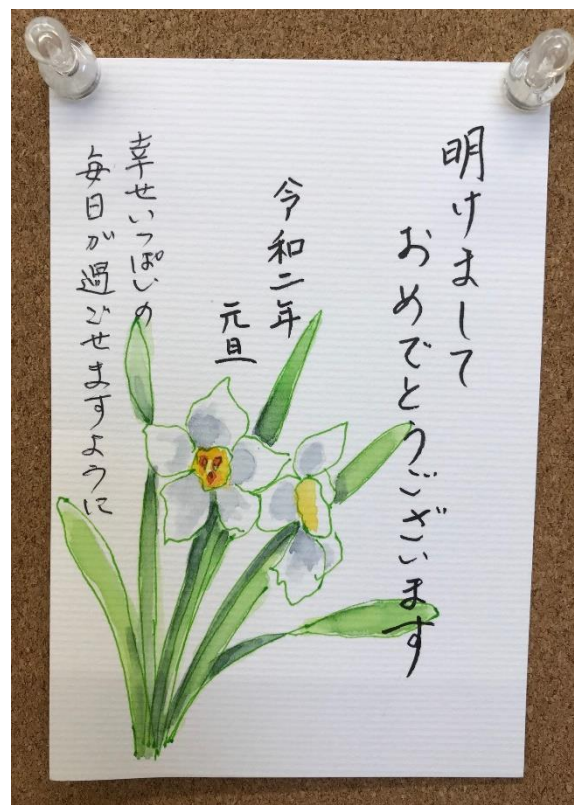 明けまして
おめでとうございます
令和二年
元旦
幸せいっぱいの
毎日が過ごせますように